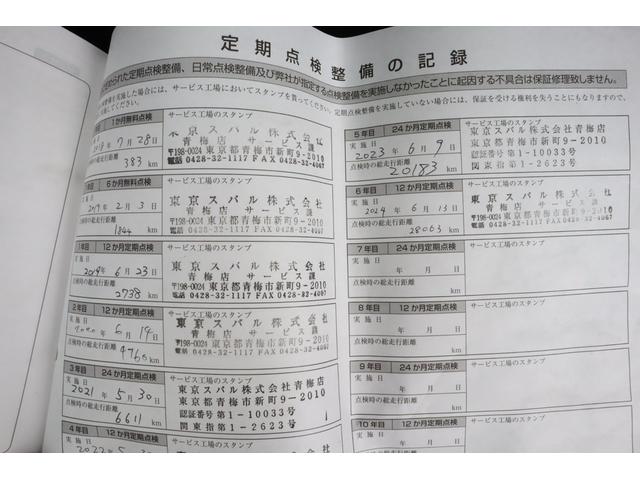 定期点検整備の記録
められた定期点検整備、日常点検整備及び弊社が指定する点検整備を実施しなかったことに起因する不具合は保証修理致しません。
を実施した場合には、サービス工場においてスタンプを貰ってください。定期点検整備を実施していない場合には、保証を受ける権利を失うこともありますので、
してください。
1か月無料点検
サービス工場のスタンプ
7月28日
点検時の総走行距離
383 km
東京スバル株式会社
青梅店 サービス課
〒198-0024 東京都青梅市新町9-2010
電話 0428-32-1117 FAX 0428-32-4007
6か月無料点検
サービス工場のスタンプ
実施日
2019年2月3日
点検時の総走行距離
1844 km
東京スバル株式会社
青梅店 サービス課
〒198-0024 東京都青梅市新町9-2010
電話 0428-32-1117 FAX 0428-32-4007
1年目 12か月定期点検
サービス工場のスタンプ
実施日
2019年6月23日
点検時の総走行距離
2738 km
東京スバル株式会社
青梅店 サービス課
〒198-0024 東京都青梅市新町9-2010
電話 0428-32-1117 FAX 0428-32-4007
2年目 12か月定期点検
サービス工場のスタンプ
実施日
2020年6月14日
点検時の総走行距離
4760 km
東京スバル株式会社
青梅店 サービス課
〒198-0024 東京都青梅市新町9-2010
電話 0428-32-1117 FAX 0428-32-4007
3年目 24か月定期点検
サービス工場のスタンプ
実施日
2021年5月30日
点検時の総走行距離
6611 km
東京スバル株式会社青梅店
〒198-0024 東京都青梅市新町9-2010
認証番号 第1-10033号
関東指第1-2623号
4年目 12か月定期点検
サービス工場のスタンプ
実施日
2022年5月
東京スバル株式会社
5年目 24か月定期点検
サービス工場のスタンプ
実施日
2023年6月9日
点検時の総走行距離
20183 km
東京スバル株式会社青梅店
〒198-0024 東京都青梅市新町9-2010
認証番号 第1-10033号
関東指第1-2623号
6年目 12か月定期点検
サービス工場のスタンプ
実施日
2024年6月13日
点検時の総走行距離
28063 km
東京スバル株式会社
青梅店 サービス課
〒198-0024 東京都青梅市新町9-2010
電話 0428-32-1117 FAX 0428-32-4007
7年目 24か月定期点検
サービス工場のスタンプ
実施日
年 月 日
点検時の総走行距離
km
8年目 12か月定期点検
サービス工場のスタンプ
実施日
年 月 日
点検時の総走行距離
km
9年目 24か月定期点検
サービス工場のスタンプ
実施日
年 月 日
点検時の総走行距離
km
10年目 12か月定期点検
サービス工場のスタンプ
実施日
年 月 日